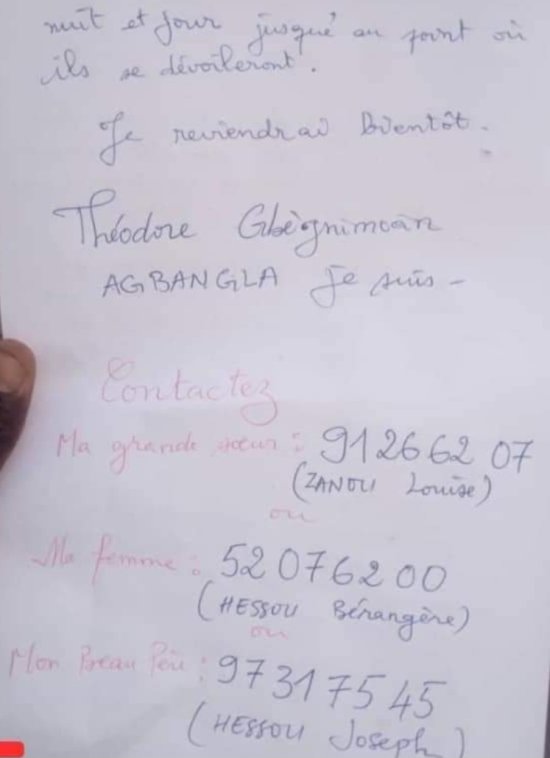 nuit et jour jusqué au point où
ils se dévoileront.
Je reviendrai Bientôt.
Théodore Gbègnimoan
AGBANGLA Je suis -
Contactez
Ma grande sœur : 91266207
(ZANOU Louise)
ou
Ma femme : 52076200
(HESSOU Bérangère)
ou
Mon Beau Père : 97317545
(HESSOU Joseph)